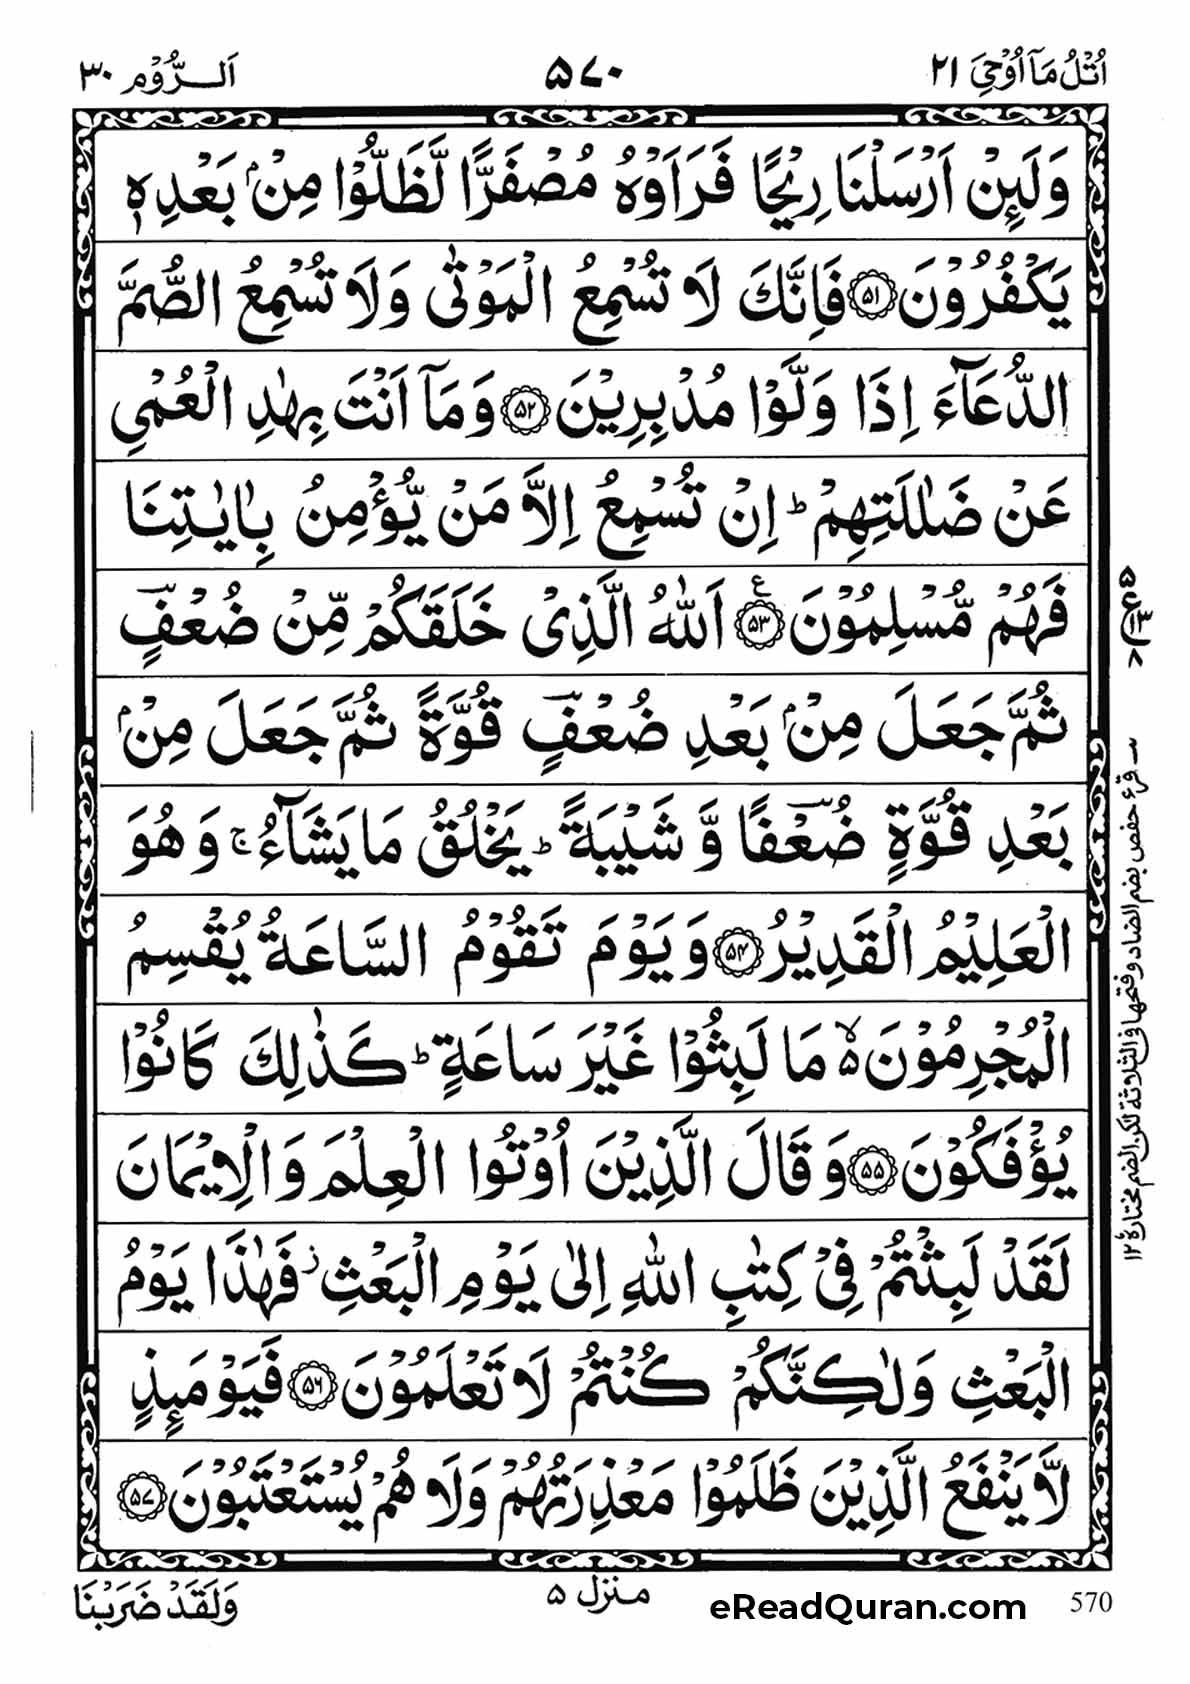 اُتْلُ مَاۤ اُوْحِیَ ۲۱
۵۷۰
اَلرُّوْم ۳۰
وَلَىِٕنْ اَرْسَلْنَا رِیْحًا فَرَاَوْهُ مُصْفَرًّا لَّظَلُّوْا مِنْۢ بَعْدِهٖ
یَكْفُرُوْنَ ۵۱ فَاِنَّكَ لَا تُسْمِعُ الْمَوْتٰی وَلَا تُسْمِعُ الصُّمَّ
الدُّعَآءَ اِذَا وَلَّوْا مُدْبِرِیْنَ ۵۲ وَمَاۤ اَنْتَ بِهٰدِ الْعُمْیِ
عَنْ ضَلٰلَتِهِمْ ؕ اِنْ تُسْمِعُ اِلَّا مَنْ یُّؤْمِنُ بِاٰیٰتِنَا
فَهُمْ مُّسْلِمُوْنَ ۵۳ ع اَللّٰهُ الَّذِیْ خَلَقَكُمْ مِّنْ ضُعْفٍ
ثُمَّ جَعَلَ مِنْۢ بَعْدِ ضُعْفٍ قُوَّةً ثُمَّ جَعَلَ مِنْۢ
بَعْدِ قُوَّةٍ ضُعْفًا وَّ شَیْبَةً ؕ یَخْلُقُ مَا یَشَآءُ ۚ وَهُوَ
الْعَلِیْمُ الْقَدِیْرُ ۵۴ وَیَوْمَ تَقُوْمُ السَّاعَةُ یُقْسِمُ
الْمُجْرِمُوْنَ ۵ۙ مَا لَبِثُوْا غَیْرَ سَاعَةٍ ؕ كَذٰلِكَ كَانُوْا
یُؤْفَكُوْنَ ۵۵ وَقَالَ الَّذِیْنَ اُوْتُوا الْعِلْمَ وَالْاِیْمَانَ
لَقَدْ لَبِثْتُمْ فِیْ كِتٰبِ اللّٰهِ اِلٰی یَوْمِ الْبَعْثِ ؗ فَهٰذَا یَوْمُ
الْبَعْثِ وَلٰكِنَّكُمْ كُنْتُمْ لَا تَعْلَمُوْنَ ۵۶ فَیَوْمَىِٕذٍ
لَّا یَنْفَعُ الَّذِیْنَ ظَلَمُوْا مَعْذِرَتُهُمْ وَلَا هُمْ یُسْتَعْتَبُوْنَ ۵۷
۵
ع
۱۳
۸
قرء حفص بضم الضاد وفتحها فی الثلاثة لكن الضم مختاره ۱۲
وَلَقَدْ ضَرَبْنَا
منزل ۵
eReadQuran.com
570